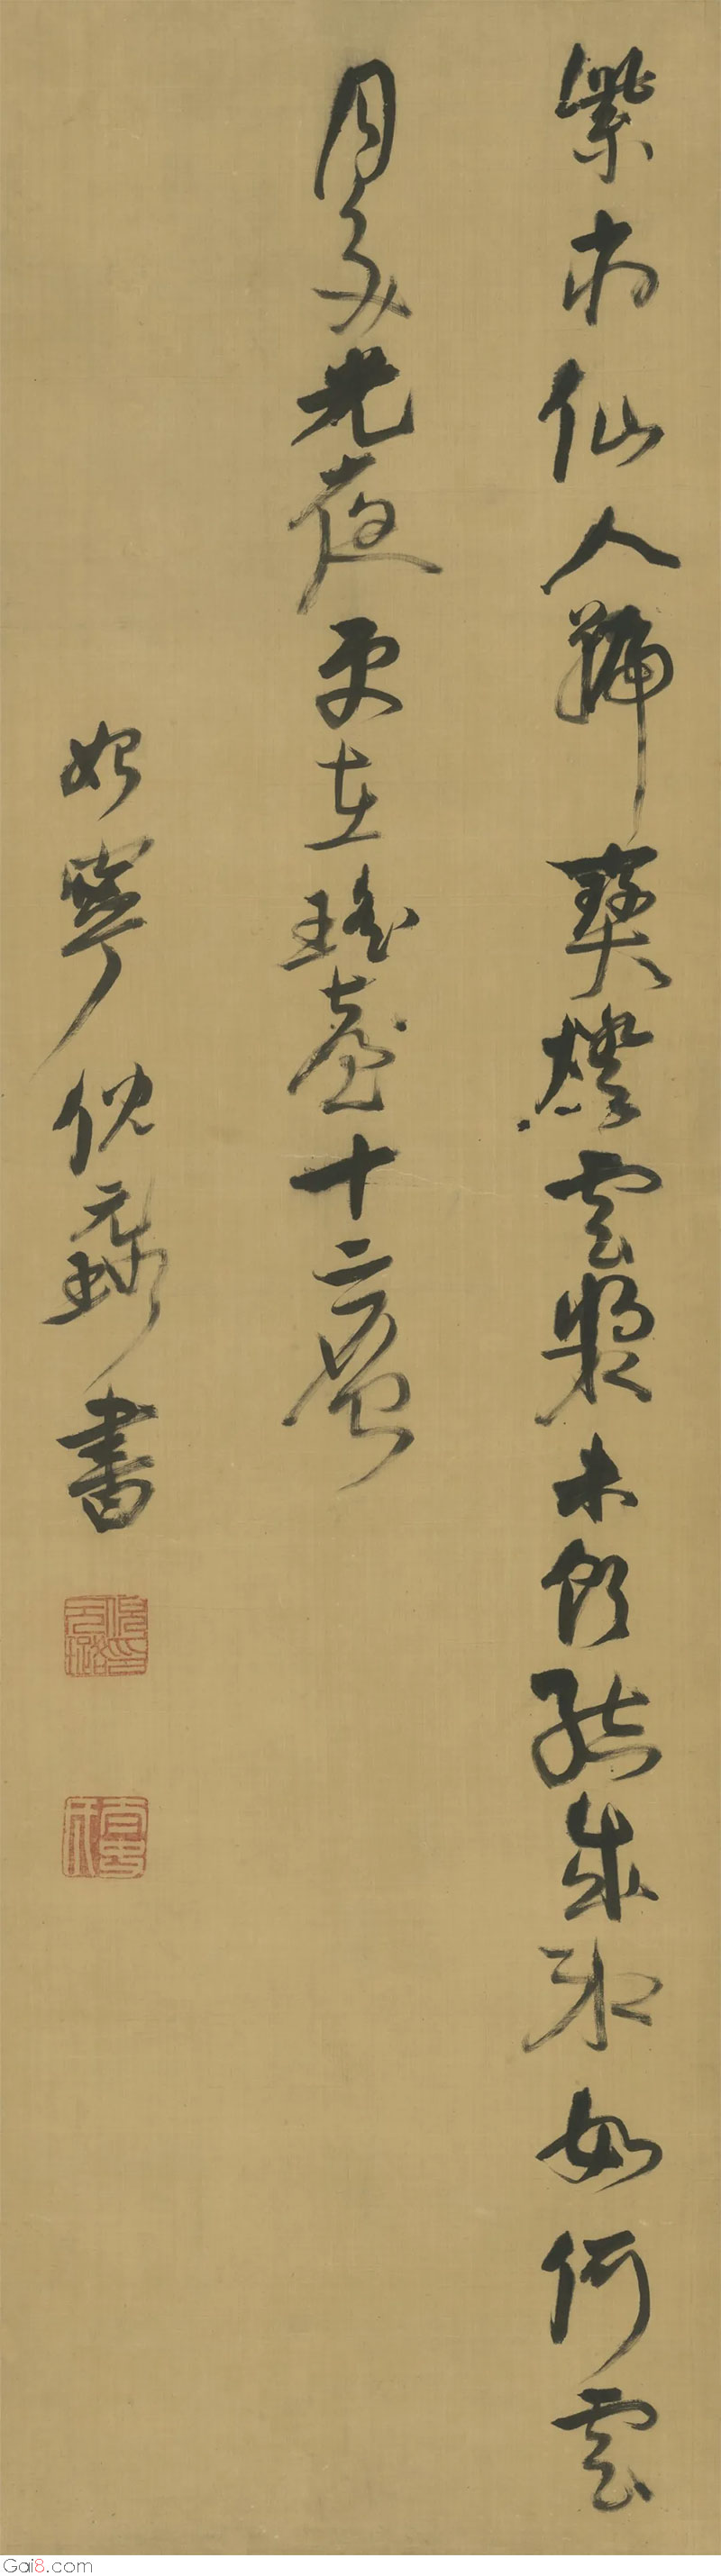 紫府仙人號寶燈雲漿未飲結成冰如何雪
月交光夜更在瑤臺十二層
始寧倪元璐書
Gai8.com